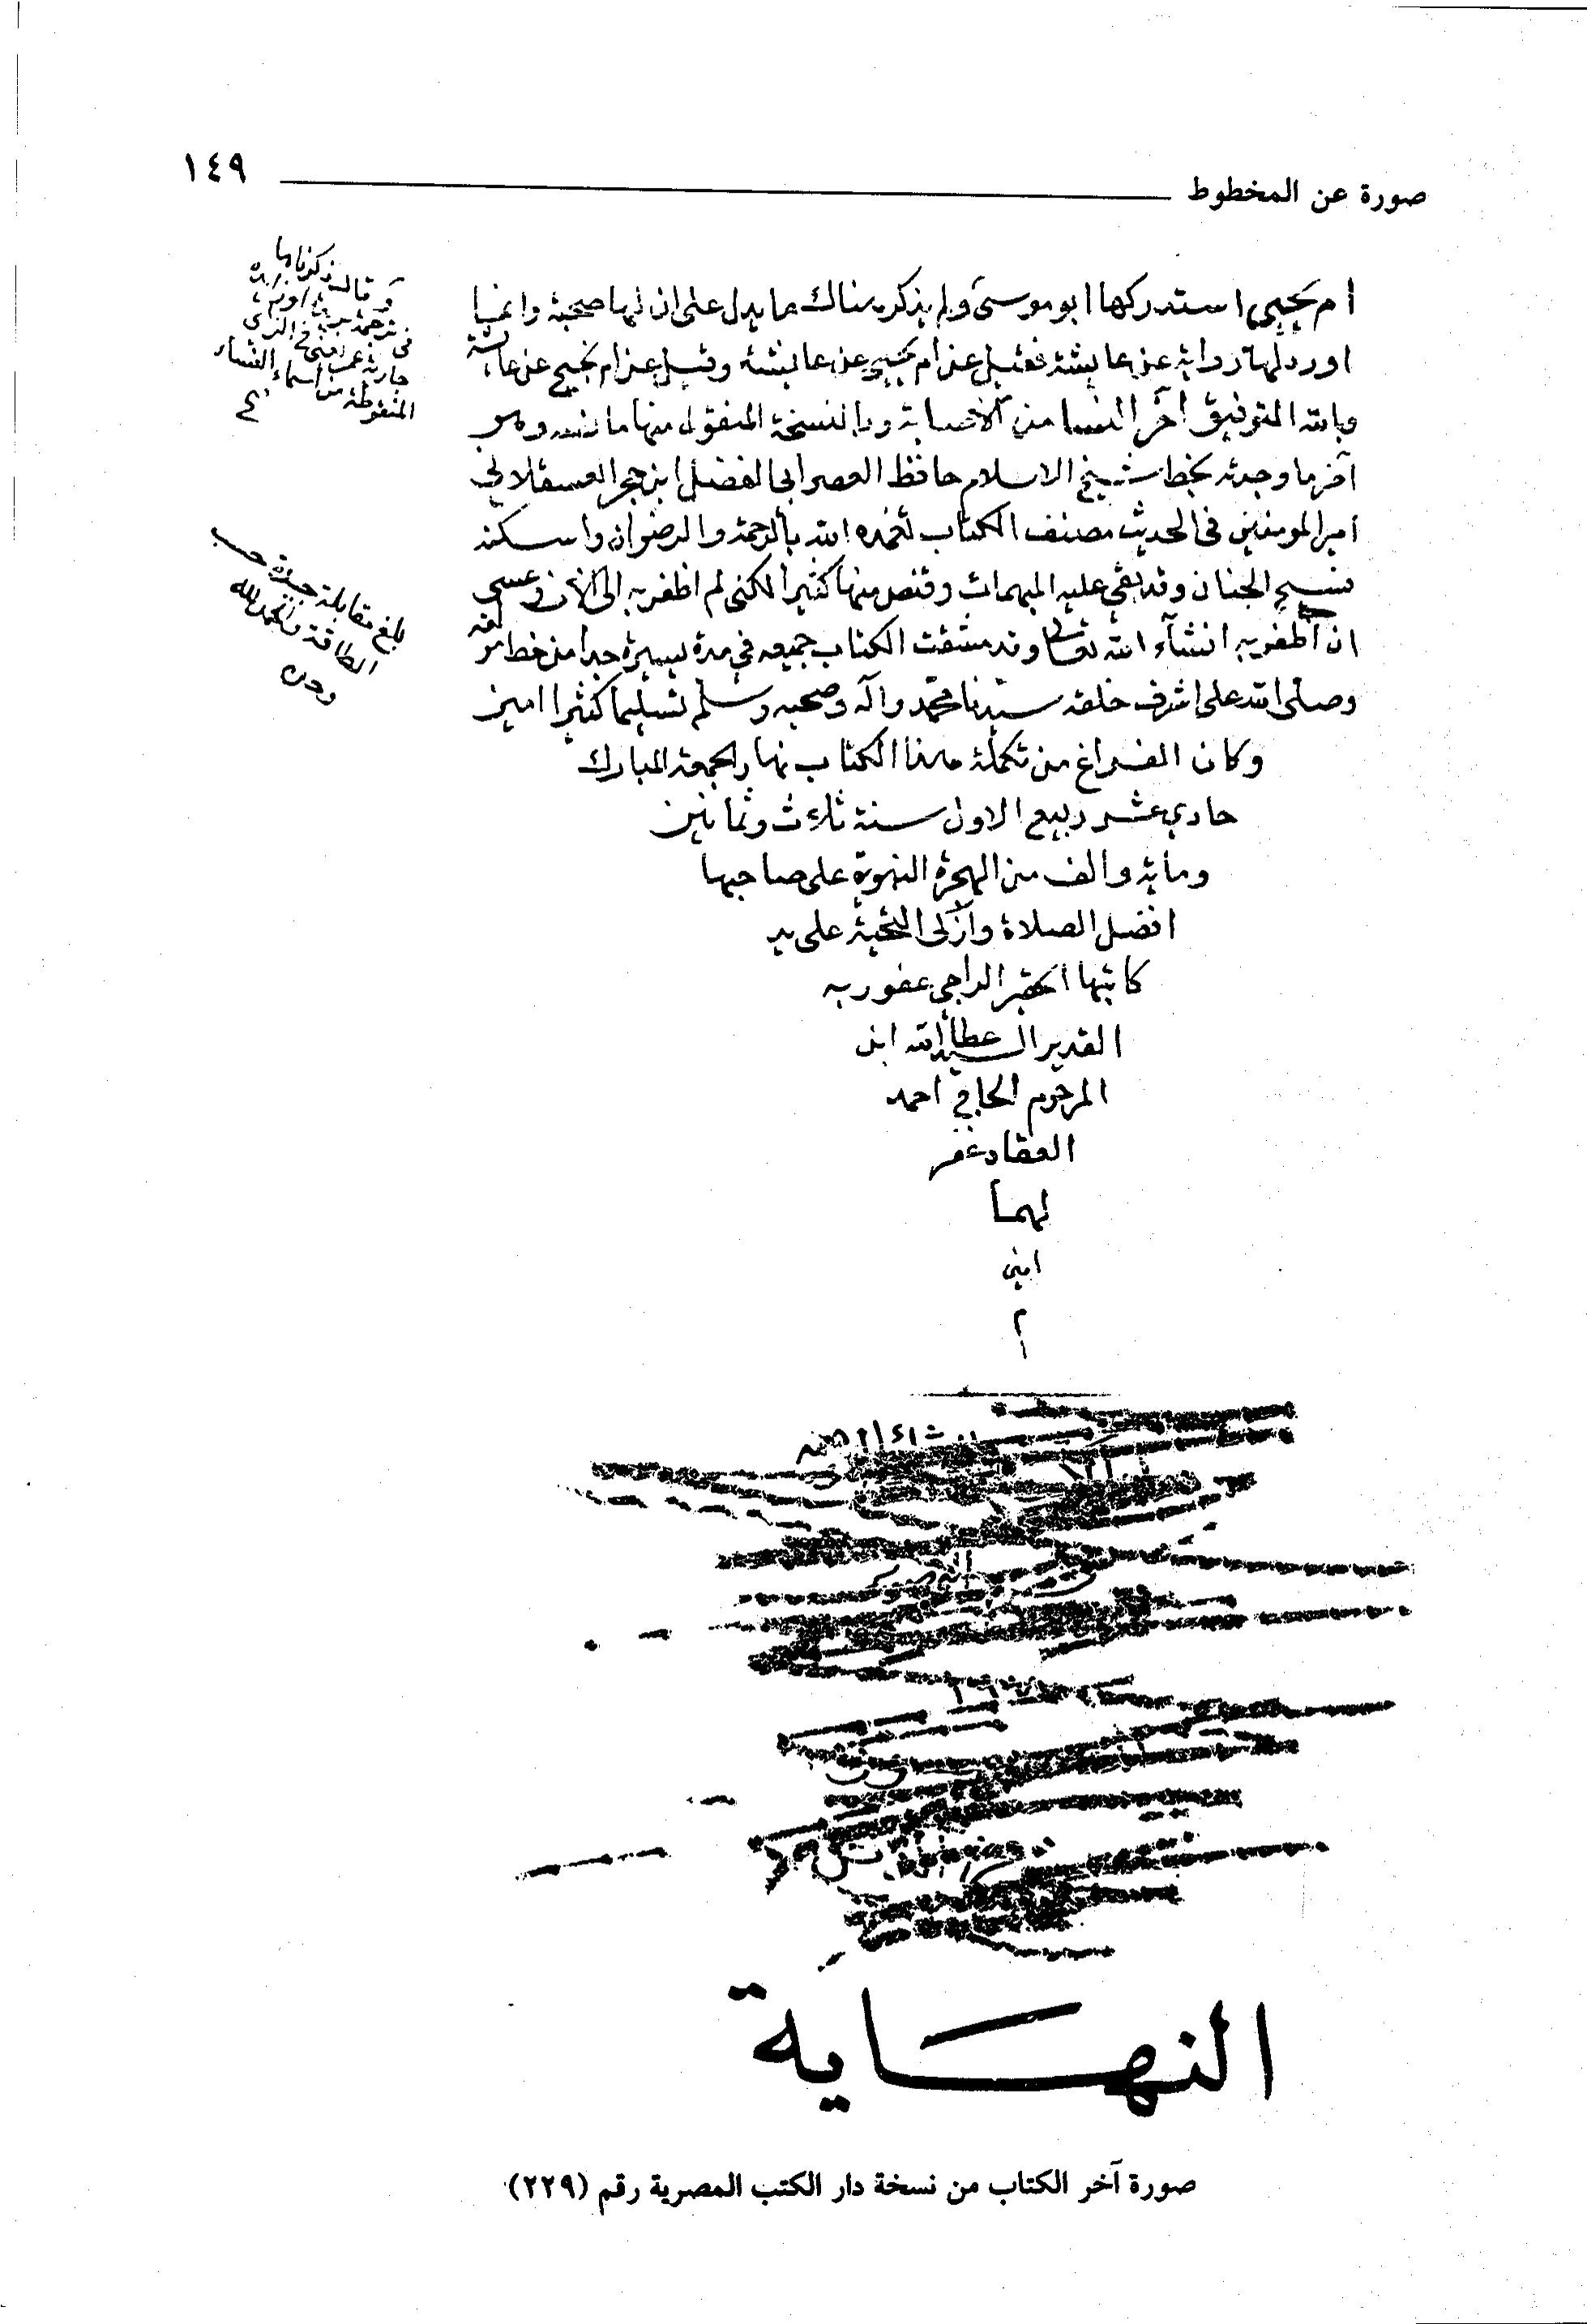 صورة عن المخطوط
١٤٩
ام يحيى استدركها ابو موسى ولم يذكر هناك ما يدل على ان لها صحبة وانما
اورد لها رواية عن عايشة فقيل عن ام يحيى عن عايشة وقيل عن ام نجيح عن عايشة
وبالله التوفيق آخر النسا من الاصابة وبالنسخة المنقول منها ما نصه وهو
آخر ما وجدته بخط شيخ الاسلام حافظ العصر ابى الفضل ابن حجر العسقلاني
امير المومنين فى الحديث مصنف الكتاب تغمده الله بالرحمة والرضوان واسكنه
فسيح الجنان وقد بقى عليه المبهمات وقنص منها كثيرا لكنى لم اظفر به الى الآن وعسى
ان اظفر به انشآء الله تعالى وقد مشقت الكتاب جميعه في مدة يسيرة جدا من خط مولفه
وصلى الله على اشرف خلقه سيدنا محمد وآله وصحبه وسلم تسليما كثيرا امين
وكان الفراغ من تكملة هذا الكتاب نهار الجمعة المبارك
حادي عشر ربيع الاول سنة ثلاث وثمانين
وماية والف من الهجرة النبوية على صاحبها
افضل الصلاة وازكى التحية على يد
كاتبها احقر الراجي عفو ربه
القدير السيد عطا الله ابن
المرحوم الحاج احمد
العقاد غفر
لهما
امين
م
وقال ذكرناها
في ترجمة
المنقوطة من اسماء النساء
بلغ مقابلة جيدة حسب
الطاقة والحمد لله
وحده
النهاية
صورة آخر الكتاب من نسخة دار الكتب المصرية رقم (٢٢٩)